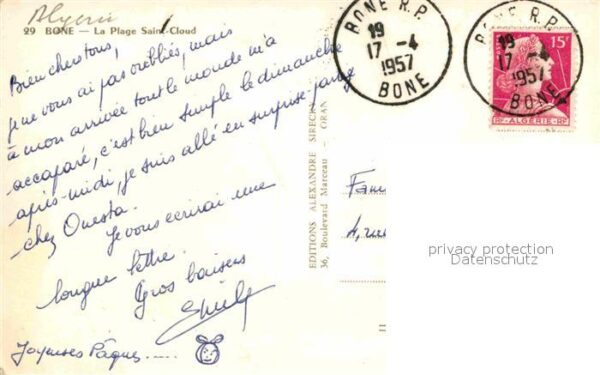 Algérie
29 BONE — La Plage Saint-Cloud
Bien chers tous,
je ne vous ai pas oubliés, mais
à mon arrivée tout le monde m'a
accaparé, c'est bien simple le dimanche
après-midi, je suis allé en surprise-party
chez Questa.
Je vous écrirai une
longue lettre.
Gros baisers
Joyeuses Pâques.....
EDITIONS ALEXANDRE SIRECKY
36, Boulevard Marceau - ORAN
BONE R.P.
19
17 -4
1957
BONE
BONE R.P.
19
17 -4
1957
BONE
15F
RF-ALGERIE-RF
Fam
4, rue
privacy protection
Datenschutz